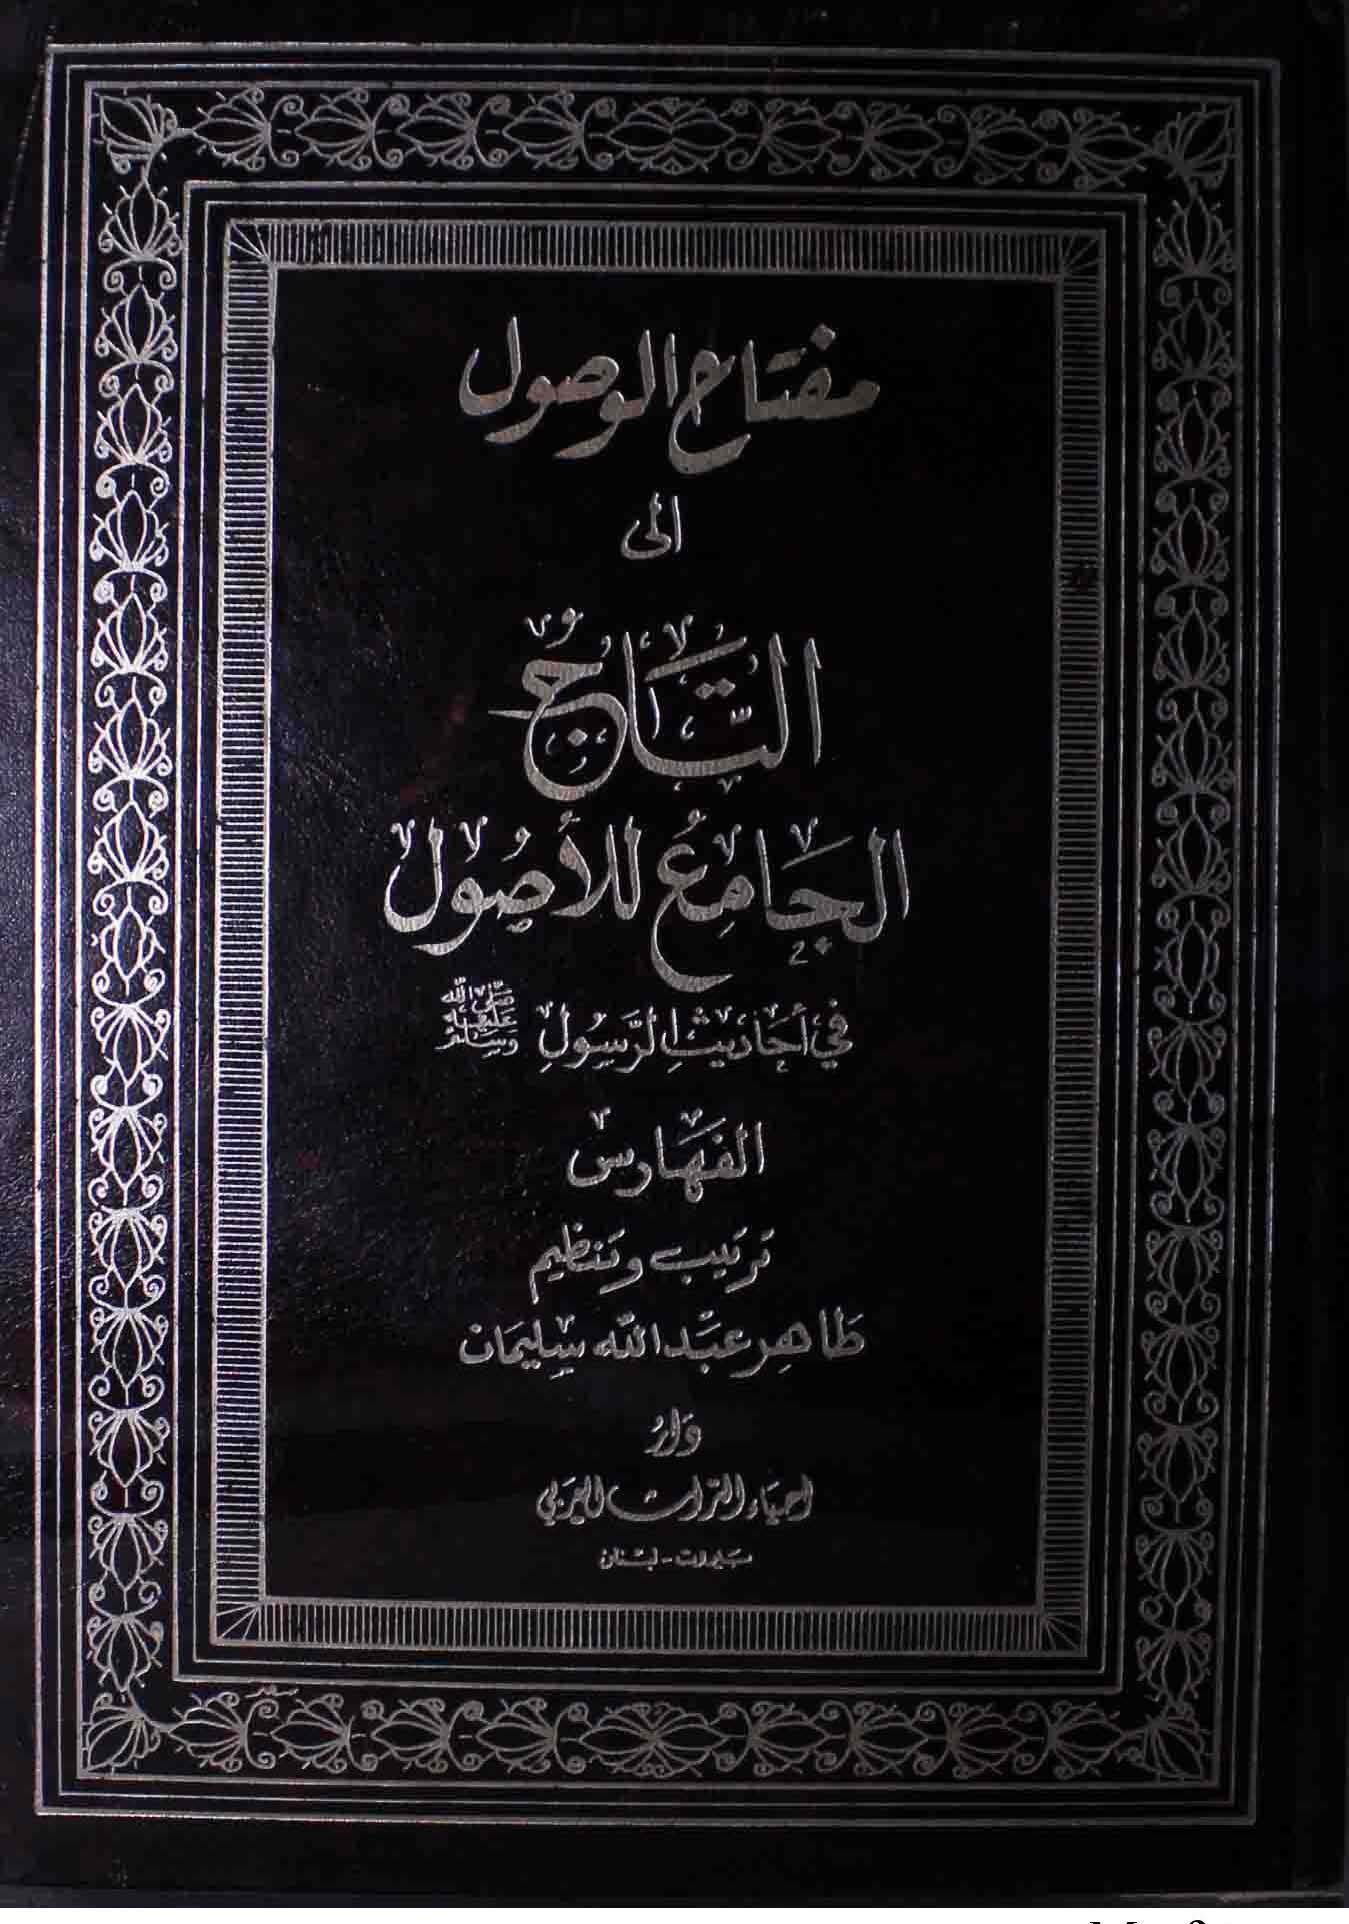 مفتاح الوصول
الى
التَّاجُ
الجَامِعُ للأصُول
في أحَاديثِ الرَّسُولِ ﷺ
الفَهَارس
تَرتيب وتَنظيم
طَاهِر عَبْد الله سليمَان
دَارُ
احيَاء التراث العَرَبي
بَيروت - لبْنان